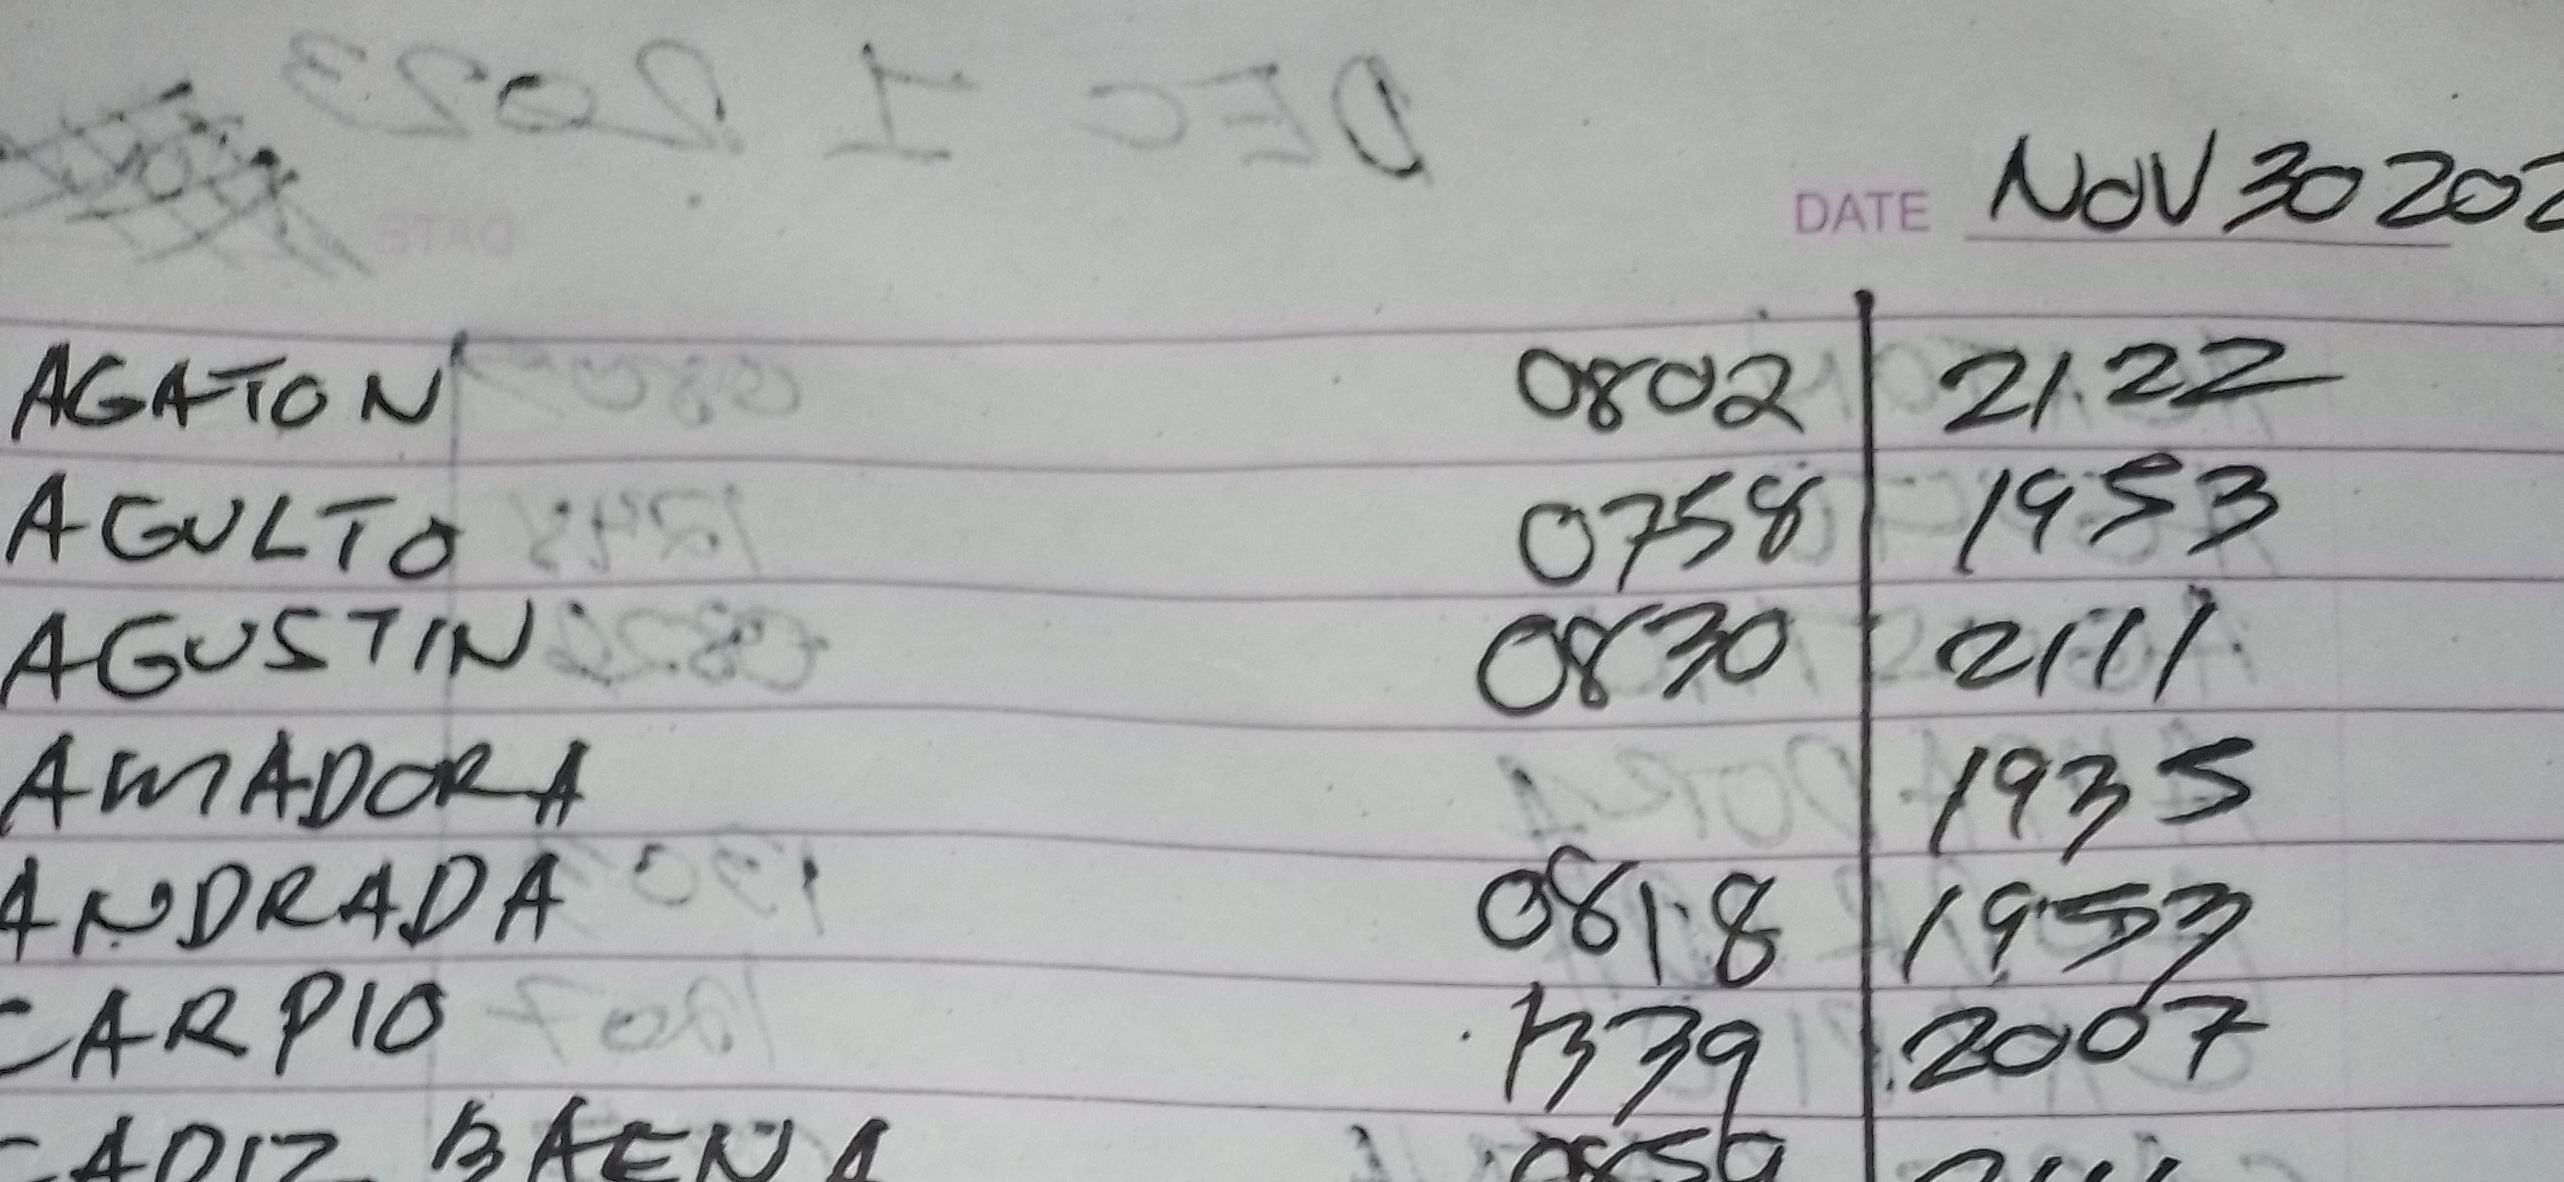 DEC 1 2023
DATE NOV 30 202
AGATON 0802 2122
AGULTO 0758 1953
AGUSTIN 0830 2111
AMADORA 1935
ANDRADA 0818 1953
CARPIO 1339 2007
CADIZ BAENA 0859